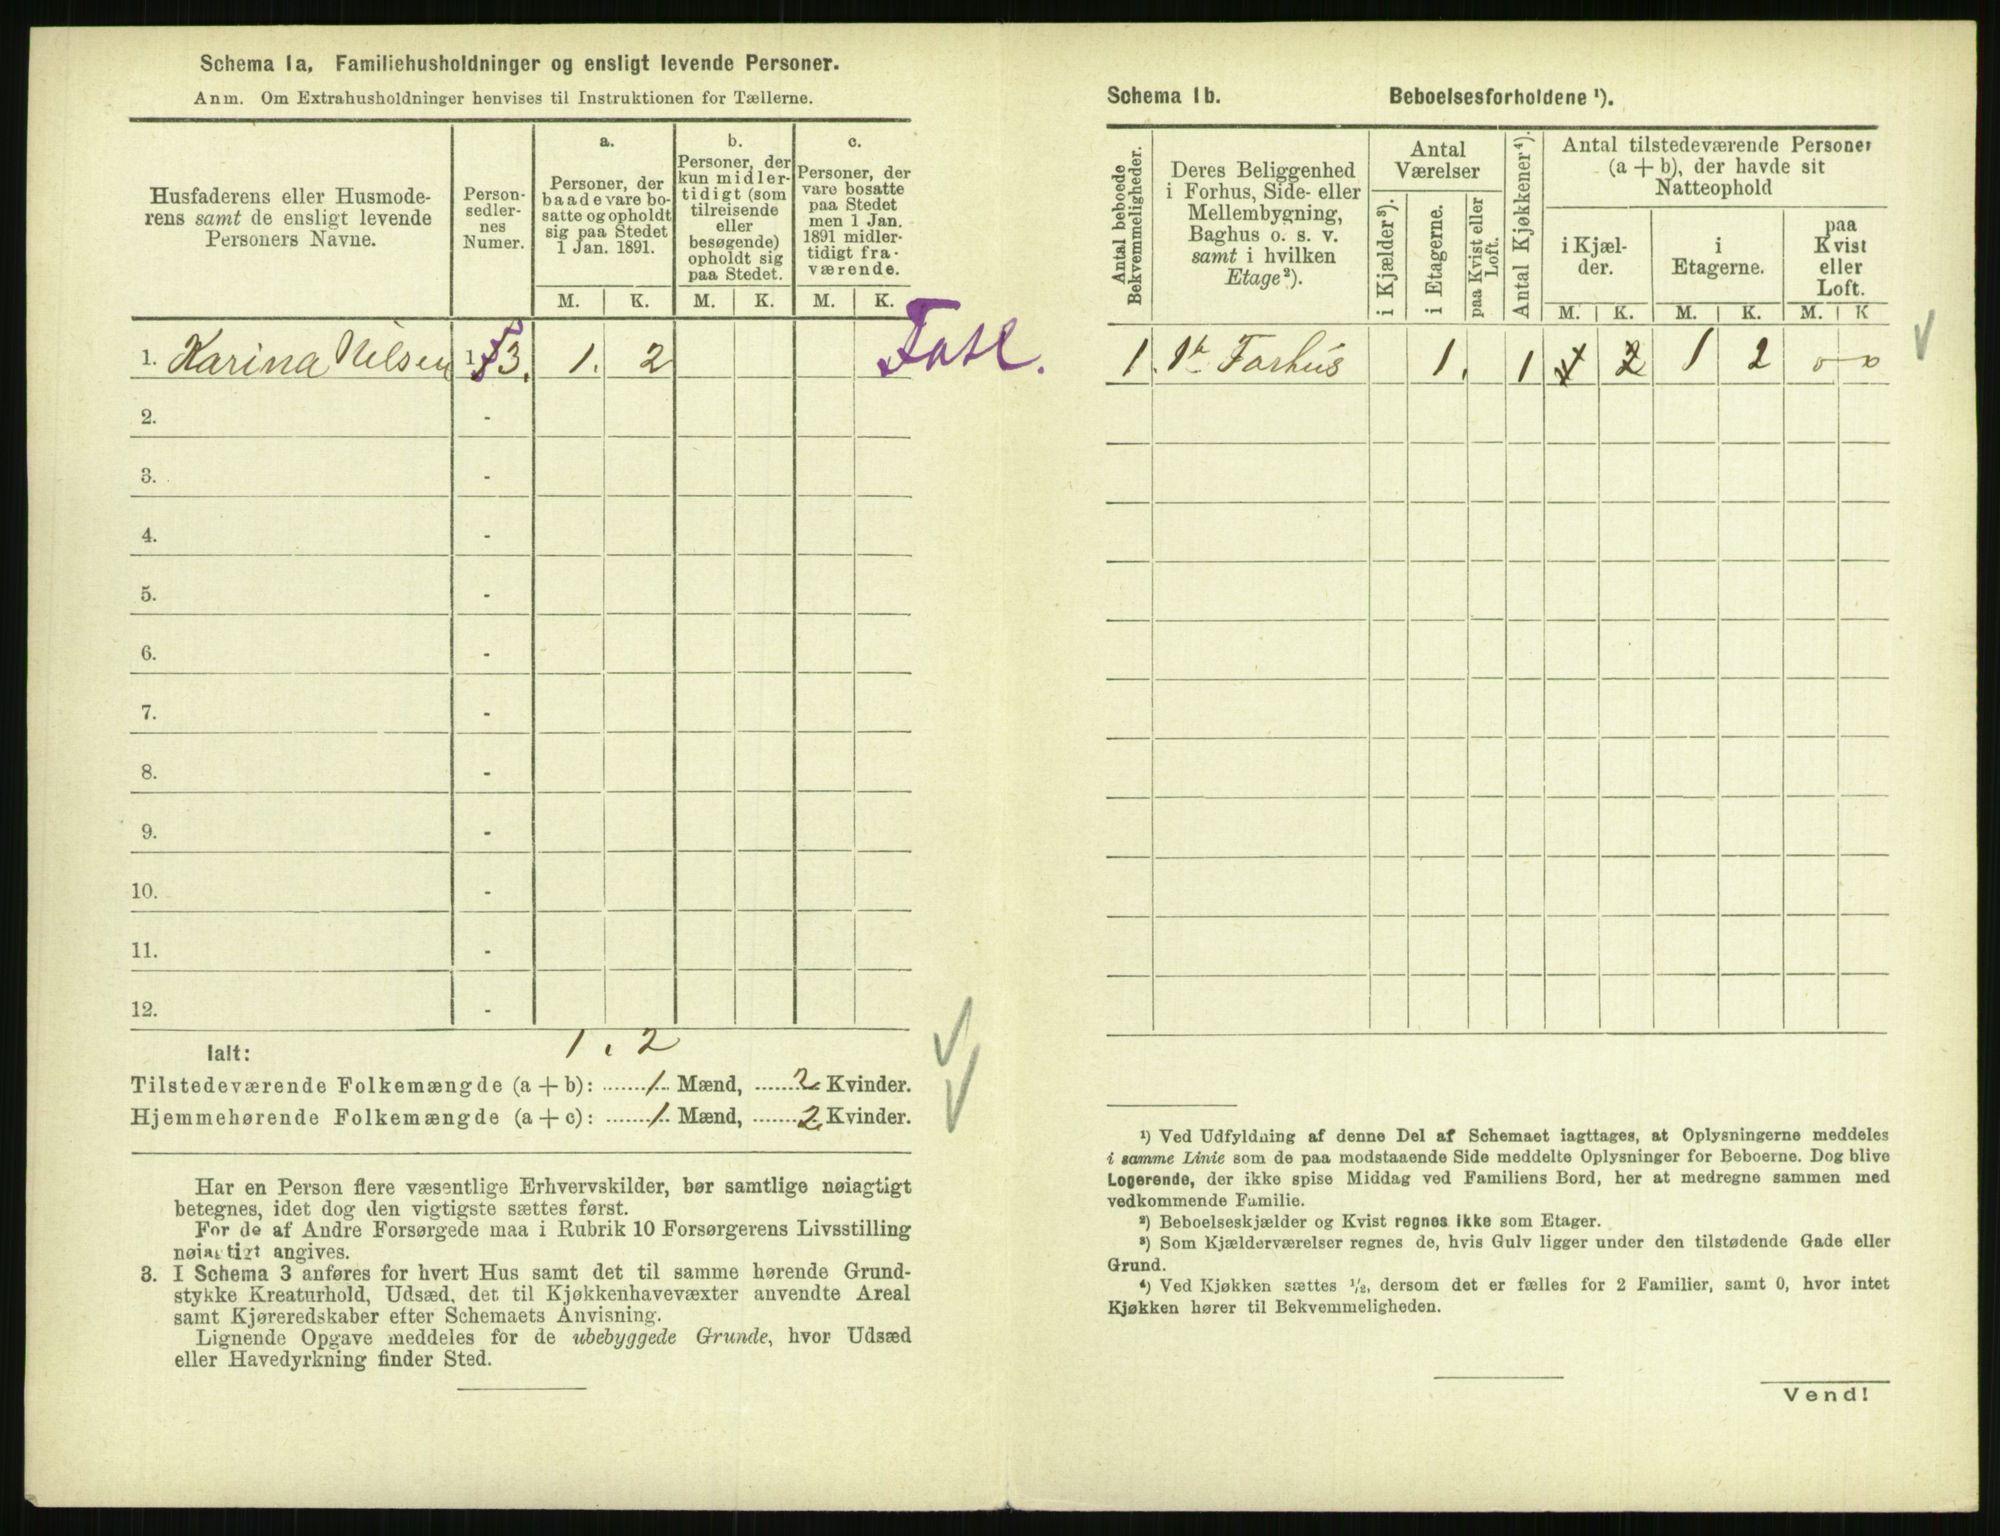 Schema 1a, Familiehusholdninger og ensligt levende Personer.
Anm. Om Extrahusholdninger henvises til Instruktionen for Tællerne.
Husfaderens eller Husmode-
rens samt de ensligt levende
Personers Navne.
Person-
sedler-
nes
Numer.
a.
Personer, der
baade vare bo-
satte og opholdt
sig paa Stedet
1 Jan. 1891.
b.
Personer, der
kun midler-
tidigt (som
tilreisende
eller
besøgende)
opholdt sig
paa Stedet.
c.
Personer, der
vare bosatte
paa Stedet
men 1 Jan.
1891 midler-
tidigt fra-
værende.
M. K. M. K. M. K.
1. Karina Nilsen 3. 1. 2
2. -
3. -
4. -
5. -
6. -
7. -
8. -
9. -
10. -
11. -
12. -
Ialt: 1. 2
Tilstedeværende Folkemængde (a + b): 1 Mænd, 2 Kvinder.
Hjemmehørende Folkemængde (a + c): 1 Mænd, 2 Kvinder.
Har en Person flere væsentlige Erhvervskilder, bør samtlige nøiagtigt
betegnes, idet dog den vigtigste sættes først.
For de af Andre Forsørgede maa i Rubrik 10 Forsørgerens Livsstilling
nøiagtigt angives.
3. I Schema 3 anføres for hvert Hus samt det til samme hørende Grund-
stykke Kreaturhold, Udsæd, det til Kjøkkenhavevæxter anvendte Areal
samt Kjøreredskaber efter Schemaets Anvisning.
Lignende Opgave meddeles for de ubebyggede Grunde, hvor Udsæd
eller Havedyrkning finder Sted.
Schema 1b. Beboelsesforholdene ¹).
Antal beboede
Bekvemmeligheder.
Deres Beliggenhed
i Forhus, Side- eller
Mellembygning,
Baghus o. s. v.
samt i hvilken
Etage²).
Antal
Værelser
i Kjælder³).
i Etagerne.
paa Kvist eller
Loft.
Antal Kjøkkener⁴).
Antal tilstedeværende Personer
(a + b), der havde sit
Natteophold
i Kjæl-
der.
i
Etagerne.
paa
Kvist
eller
Loft.
M. K. M. K. M. K
1. Forhus 1. 1 1 2 1 2 0 0
¹) Ved Udfyldning af denne Del af Schemaet iagttages, at Oplysningerne meddeles
i samme Linie som de paa modstaaende Side meddelte Oplysninger for Beboerne. Dog blive
Logerende, der ikke spise Middag ved Familiens Bord, her at medregne sammen med
vedkommende Familie.
²) Beboelseskjælder og Kvist regnes ikke som Etager.
³) Som Kjælderværelser regnes de, hvis Gulv ligger under den tilstødende Gade eller
Grund.
⁴) Ved Kjøkken sættes ¹/₂, dersom det er fælles for 2 Familier, samt 0, hvor intet
Kjøkken hører til Bekvemmeligheden.
Vend!